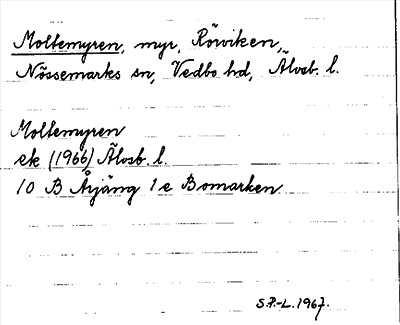 Moltemyren, myr, Rörviken,
Nössemarks sn, Vedbo hd, Älvsb. l.
Moltemyren
ek (1966) Älvsb. l.
10 B Årjäng 1e Bomarken
S.P.-L. 1967.